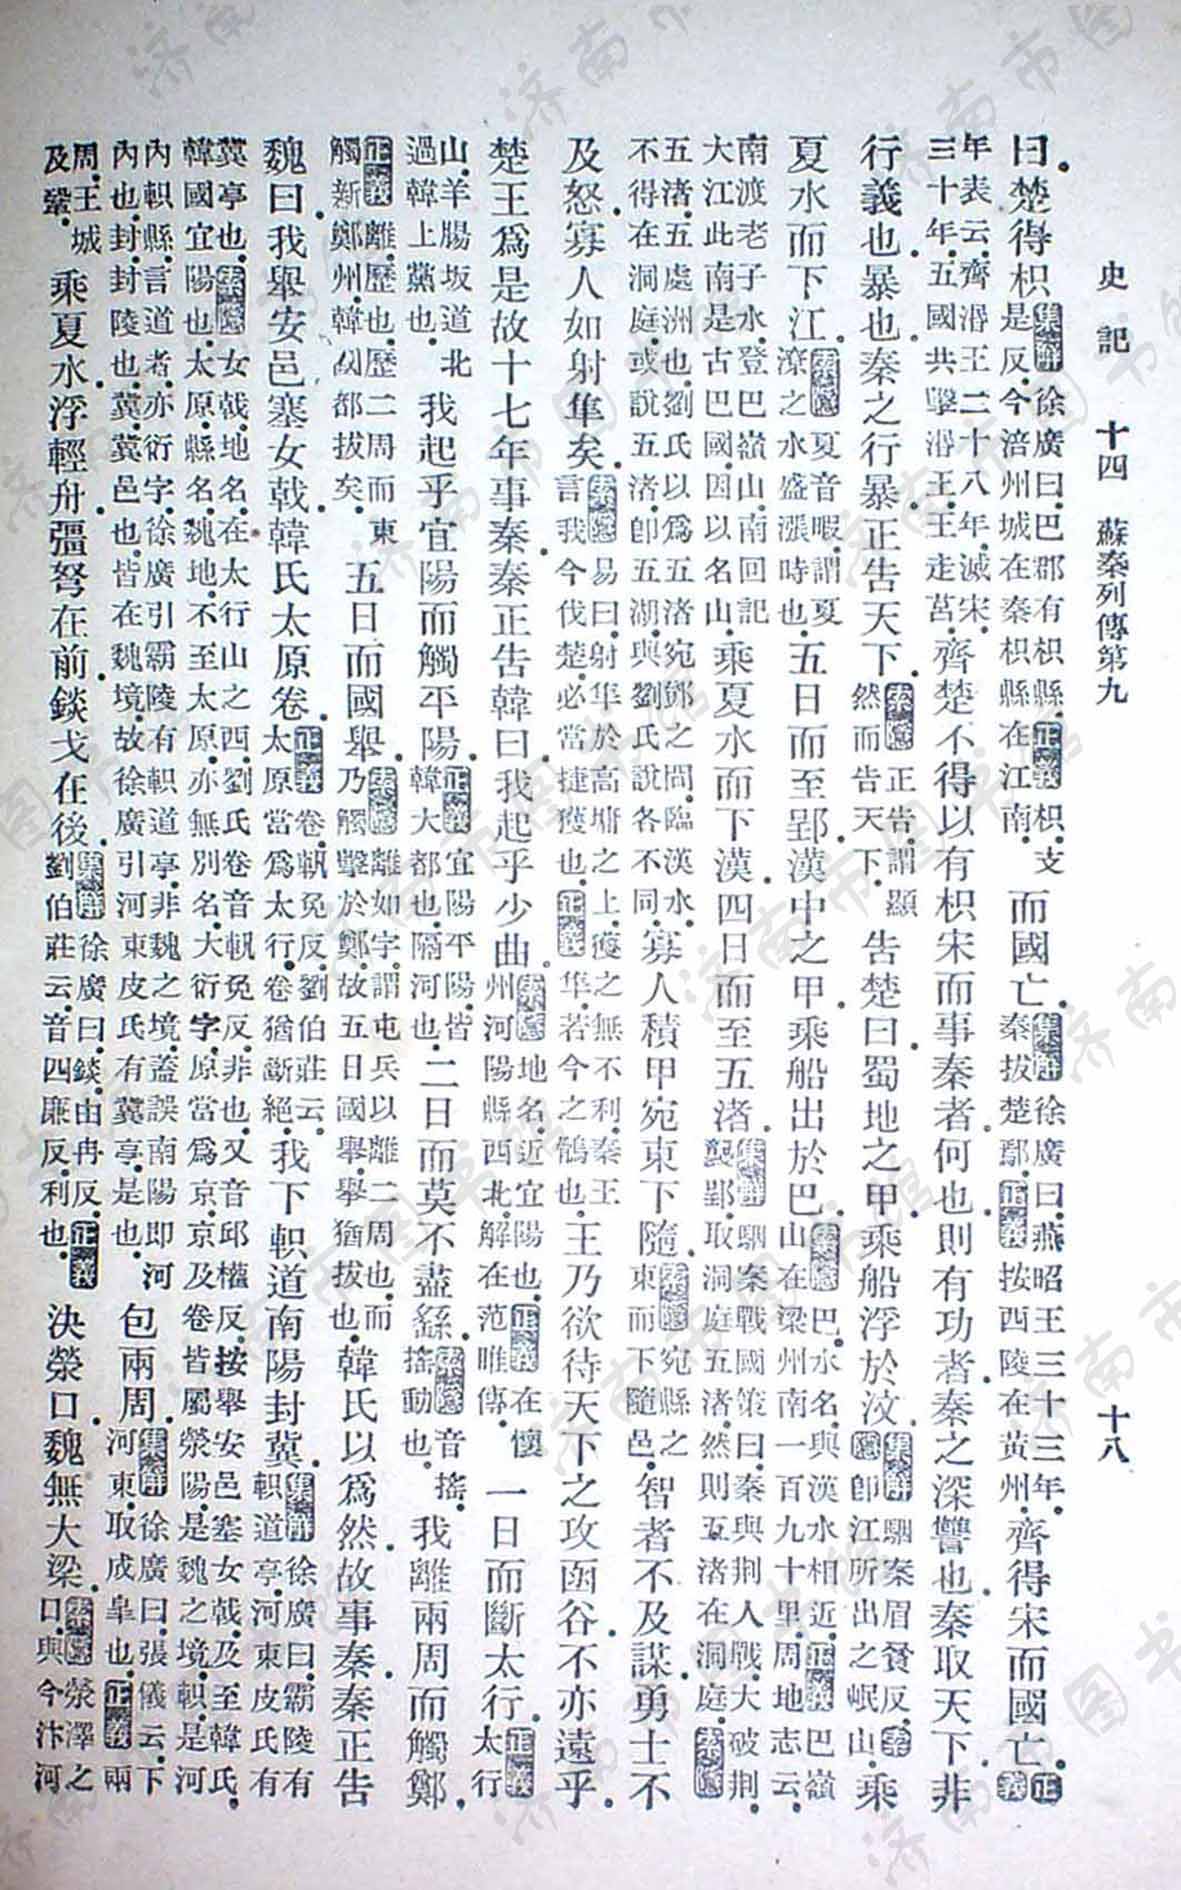 史記 十四 蘇秦列傳第九 十八
曰。楚得枳集解徐廣曰。巴郡有枳縣。正義枳。支是反。今涪州城。在秦枳縣在江南。而國亡。集解徐廣曰。燕昭王三十三年。秦拔楚鄢。正義按西陵在黃州。齊得宋而國亡。正義
年表云。齊湣王二十八年。滅宋。三十年。五國共擊湣王。王走莒。齊楚不得以有枳宋而事秦者。何也。則有功者。秦之深讐也。秦取天下。非
行義也。暴也。秦之行暴。正告天下。索隱正告。謂顯然而告天下。告楚曰。蜀地之甲。乘船浮於汶。集解駰案眉貧反。索隱即江所出之岷山。乘
夏水而下江。索隱夏音暇。謂夏潦之水盛漲時也。五日而至郢。漢中之甲。乘船出於巴。索隱巴。水名。與漢水相近。正義巴嶺山在梁州南一百九十里。周地志云。
南渡老子水。登巴嶺山。南回記大江。此南是古巴國。因以名山。乘夏水而下漢。四日而至五渚。集解駰案戰國策曰。秦與荊人戰。大破荊。襲郢。取洞庭五渚。然則五渚在洞庭。索隱
五渚。五處洲也。劉氏以爲五渚宛鄧之間。臨漢水。不得在洞庭。或說五渚即五湖。與劉氏說各不同。寡人積甲宛東下隨。索隱宛縣之東而下隨邑。智者不及謀。勇士不
及怒。寡人如射隼矣。索隱易曰。射隼於高墉之上。獲之無不利。秦王言我今伐楚。必當捷獲也。正義隼。若今之鶻也。王乃欲待天下之攻函谷。不亦遠乎。
楚王爲是故十七年事秦。秦正告韓曰。我起乎少曲。索隱地名。近宜陽也。正義在懷州河陽縣西北。解在范睢傳。一日而斷太行。正義太行
山羊腸坂道。北過韓上黨也。我起乎宜陽而觸平陽。正義宜陽平陽。皆韓大都也。隔河也。二日而莫不盡繇。索隱音搖。搖動也。我離兩周而觸鄭。
正義離。歷也。歷二周而東觸新鄭州。韓國都拔矣。五日而國舉。索隱離如字。謂屯兵以離二周也。而乃觸擊於鄭。故五日國舉。舉猶拔也。韓氏以爲然。故事秦。秦正告
魏曰。我舉安邑。塞女戟。韓氏太原卷。正義卷。軌免反。劉伯莊云。太原當爲太行。卷猶斷絕。我下軹道南陽封冀。集解徐廣曰。霸陵有軹道亭。河東皮氏有
冀亭也。索隱女戟。地名。在太行山之西。劉氏卷音軌免反。非也。又音邱權反。按舉安邑。塞女戟。及至韓氏。韓國宜陽也。太原縣名。魏地。不至太原。亦無別名。大衍字。原當爲京。京及卷皆屬滎陽。是魏之境。軹是河
內軹縣。言道者。亦衍字。徐廣引霸陵有軹道亭。非魏之境。蓋誤。南陽即河內也。封。封陵也。冀。冀邑也。皆在魏境。故徐廣引河東皮氏有冀亭是也。包兩周。集解徐廣曰。張儀云。下河東。取成皐也。正義兩
周。王城及鞏。乘夏水。浮輕舟。彊弩在前。錟戈在後。集解徐廣曰。錟。由冉反。劉伯莊云。音四廉反。利也。正義決榮口。魏無大梁。索隱滎澤之口。與今汴河